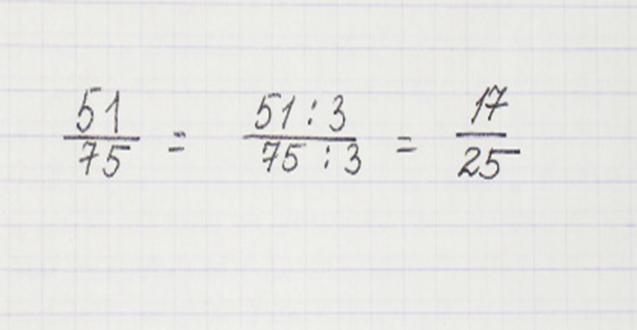 51/75 = 51:3/75:3 = 17/25